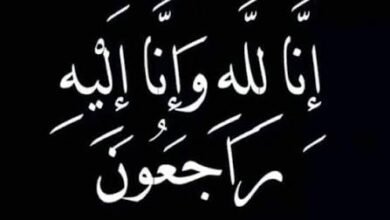 إِنَّا لله وَإِنَّا إِلَيْهِ
رَاجَعُونَ